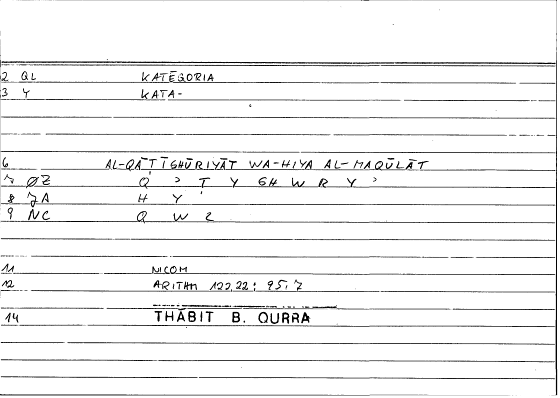 2 QL KATĒGORIA
3 Y KATA-
6 AL-QĀṬĪGHŪRIYĀT WA-HIYA AL-MAQŪLĀT
7 ØZ Q ʾ T Y GH W R Y ʾ
8 JA H Y
9 NC Q W L
11 NICOM
12 ARITHM 122,22: 95,7
14 THĀBIT B. QURRA